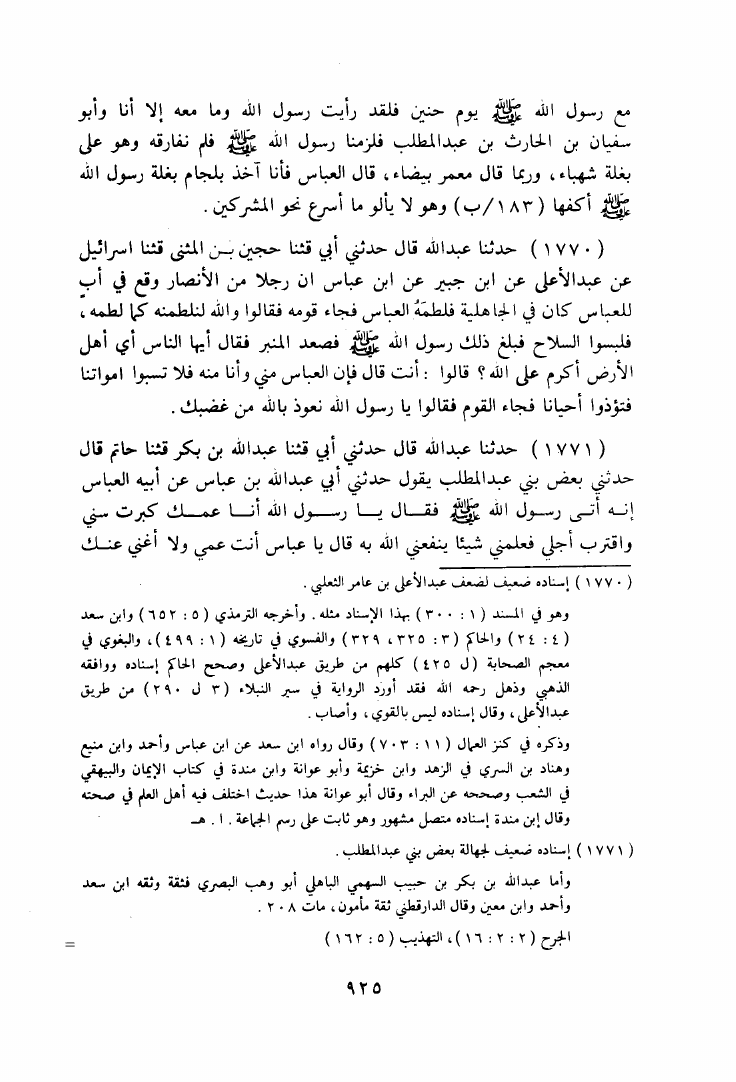 مع رسول الله ﷺ يوم حنين فلقد رأيت رسول الله وما معه إلا أنا وأبو
سفيان بن الحارث بن عبدالمطلب فلزمنا رسول الله ﷺ فلم نفارقه وهو على
بغلة شهباء، وربما قال معمر بيضاء، قال العباس فأنا آخذ بلجام بغلة رسول الله
ﷺ أكفها (١٨٣/ب) وهو لا يألو ما أسرع نحو المشركين.
(١٧٧٠) حدثنا عبدالله قال حدثني أبي قثنا حجين بــن المثنى قثنا اسرائيل
عن عبدالأعلى عن ابن جبير عن ابن عباس ان رجلا من الأنصار وقع في أبٍ
للعباس كان في الجاهلية فلطمَهُ العباس فجاء قومه فقالوا والله لنلطمنه كما لطمه،
فلبسوا السلاح فبلغ ذلك رسول الله ﷺ فصعد المنبر فقال أيها الناس أي أهل
الأرض أكرم على الله؟ قالوا : أنت قال فإن العباس مني وأنا منه فلا تسبوا امواتنا
فتؤذوا أحيانا فجاء القوم فقالوا يا رسول الله نعوذ بالله من غضبك.
(١٧٧١) حدثنا عبدالله قال حدثني أبي قثنا عبدالله بن بكر قثنا حاتم قال
حدثني بعض بني عبدالمطلب يقول حدثني أبي عبدالله بن عباس عن أبيه العباس
إنــه أتــى رســول الله ﷺ فقــال يــا رســول الله أنــا عمــك كبرت سني
واقترب أجلي فعلمني شيئا ينفعني الله به قال يا عباس أنت عمي ولا أغني عنــك
(١٧٧٠) إسناده ضعيف لضعف عبدالأعلى بن عامر الثعلبي.
وهو في المسند (١ : ٣٠٠) بهذا الإسناد مثله. وأخرجه الترمذي (٥ : ٦٥٢) وابن سعد
(٤ : ٢٤) والحاكم (٣ : ٣٢٥، ٣٢٩) والفسوي في تاريخه (١ : ٤٩٩)، والبغوي في
معجم الصحابة (ل ٤٢٥) كلهم من طريق عبدالأعلى وصحح الحاكم إسناده ووافقه
الذهبي وذهل رحمه الله فقد أورد الرواية في سير النبلاء (٣ ل ٢٩٠) من طريق
عبدالأعلى، وقال إسناده ليس بالقوي، وأصاب.
وذكره في كنز العمال (١١ : ٧٠٣) وقال رواه ابن سعد عن ابن عباس وأحمد وابن منيع
وهناد بن السري في الزهد وابن خزيمة وأبو عوانة وابن مندة في كتاب الإيمان والبيهقي
في الشعب وصححه عن البراء وقال أبو عوانة هذا حديث اختلف فيه أهل العلم في صحته
وقال إبن مندة إسناده متصل مشهور وهو ثابت على رسم الجماعة. ا. هـ
(١٧٧١) إسناده ضعيف لجهالة بعض بني عبدالمطلب.
وأما عبدالله بن بكر بن حبيب السهمي الباهلي أبو وهب البصري فثقة وثقه ابن سعد
وأحمد وابن معين وقال الدارقطني ثقة مأمون، مات ٢٠٨.
الجرح (٢ : ٢ : ١٦)، التهذيب (٥ : ١٦٢)
=
٩٢٥